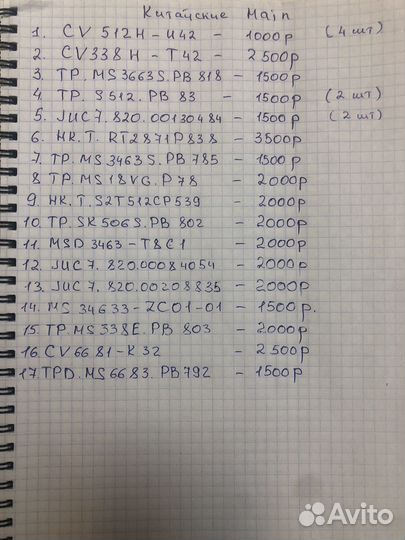 Китайские Main
1. CV 512H - U42 - 1000р (4 шт)
2. CV338H - T42 - 2500р
3. TP. MS3663S. PB 818 - 1500р
4. TP. S512. PB 83 - 1500р (2 шт)
5. JUC7.820.00130484 - 1500р (2 шт)
6. HK.T. RT2871P838 - 3500р
7. TP. MS3463S. PB 785 - 1500р
8. TP. MS18VG. P78 - 2000р
9. HK.T.S2T512CP539 - 2000р
10. TP. SK506S. PB 802 - 2000р
11. MSD 3463 - T8C1 - 2000р
12. JUC7.820.00084054 - 2000р
13. JUC7.820.00208835 - 2000р
14. MS 34633 - ZC01-01 - 1500р.
15. TP. MS338E. PB 803 - 2000р
16. CV6681-K32 - 2500р
17. TPD. MS6683. PB792 - 1500р
Avito